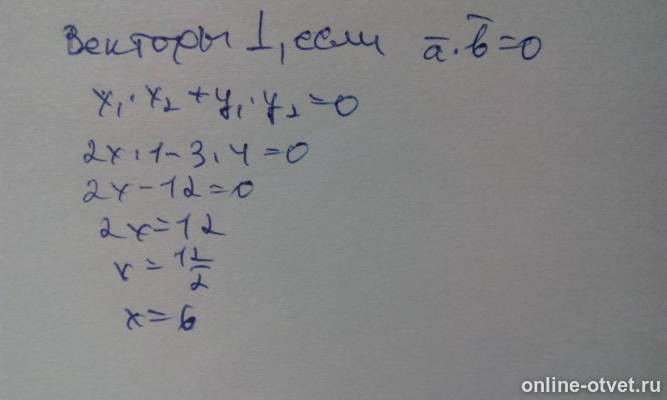 Векторы ⊥, если a̅·b̅=0
x₁·x₂+y₁·y₂=0
2x·1-3·4=0
2x-12=0
2x=12
x=12/2
x=6
online-otvet.ru